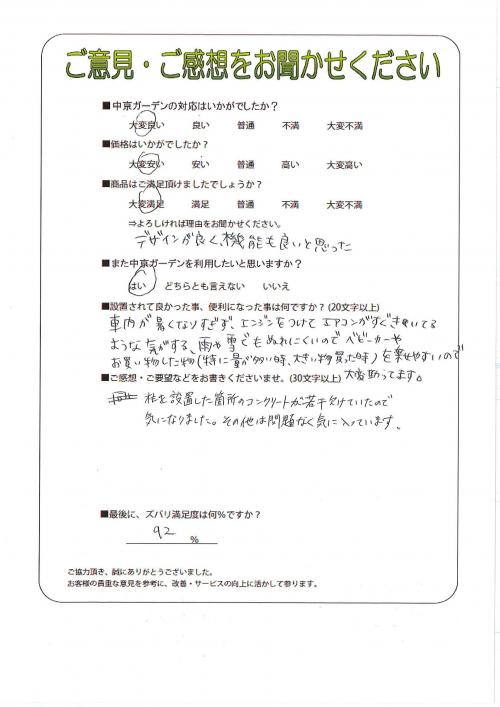 ご意見・ご感想をお聞かせください
■中京ガーデンの対応はいかがでしたか？
大変良い 良い 普通 不満 大変不満
■価格はいかがでしたか？
大変安い 安い 普通 高い 大変高い
■商品はご満足頂けましたでしょうか？
大変満足 満足 普通 不満 大変不満
⇒よろしければ理由をお聞かせください。
デザインが良く、機能も良いと思った
■また中京ガーデンを利用したいと思いますか？
はい どちらとも言えない いいえ
■設置されて良かった事、便利になった事は何ですか？(20文字以上)
車内が暑くなりすぎず、エンジンをつけてエアコンがすぐきいてる
ような気がする、雨や雪でもぬれにくいのでベビーカーや
お買い物した物(特に量が多い時、大きい物買った時)を乗せやすいので
大変助ってます。
■ご感想・ご要望などをお書きくださいませ。(30文字以上)
柱を設置した箇所のコンクリートが若干欠けていたので
気になりました。その他は問題なく気に入っています。
■最後に、ズバリ満足度は何%ですか？
92 %
ご協力頂き、誠にありがとうございました。
お客様の貴重な意見を参考に、改善・サービスの向上に活かして参ります。